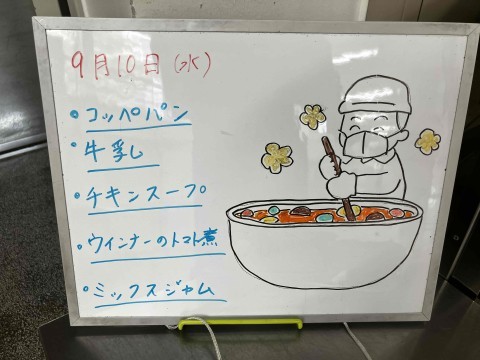 9月10日(水)
・コッペパン
・牛乳
・チキンスープ
・ウインナーのトマト煮
・ミックスジャム